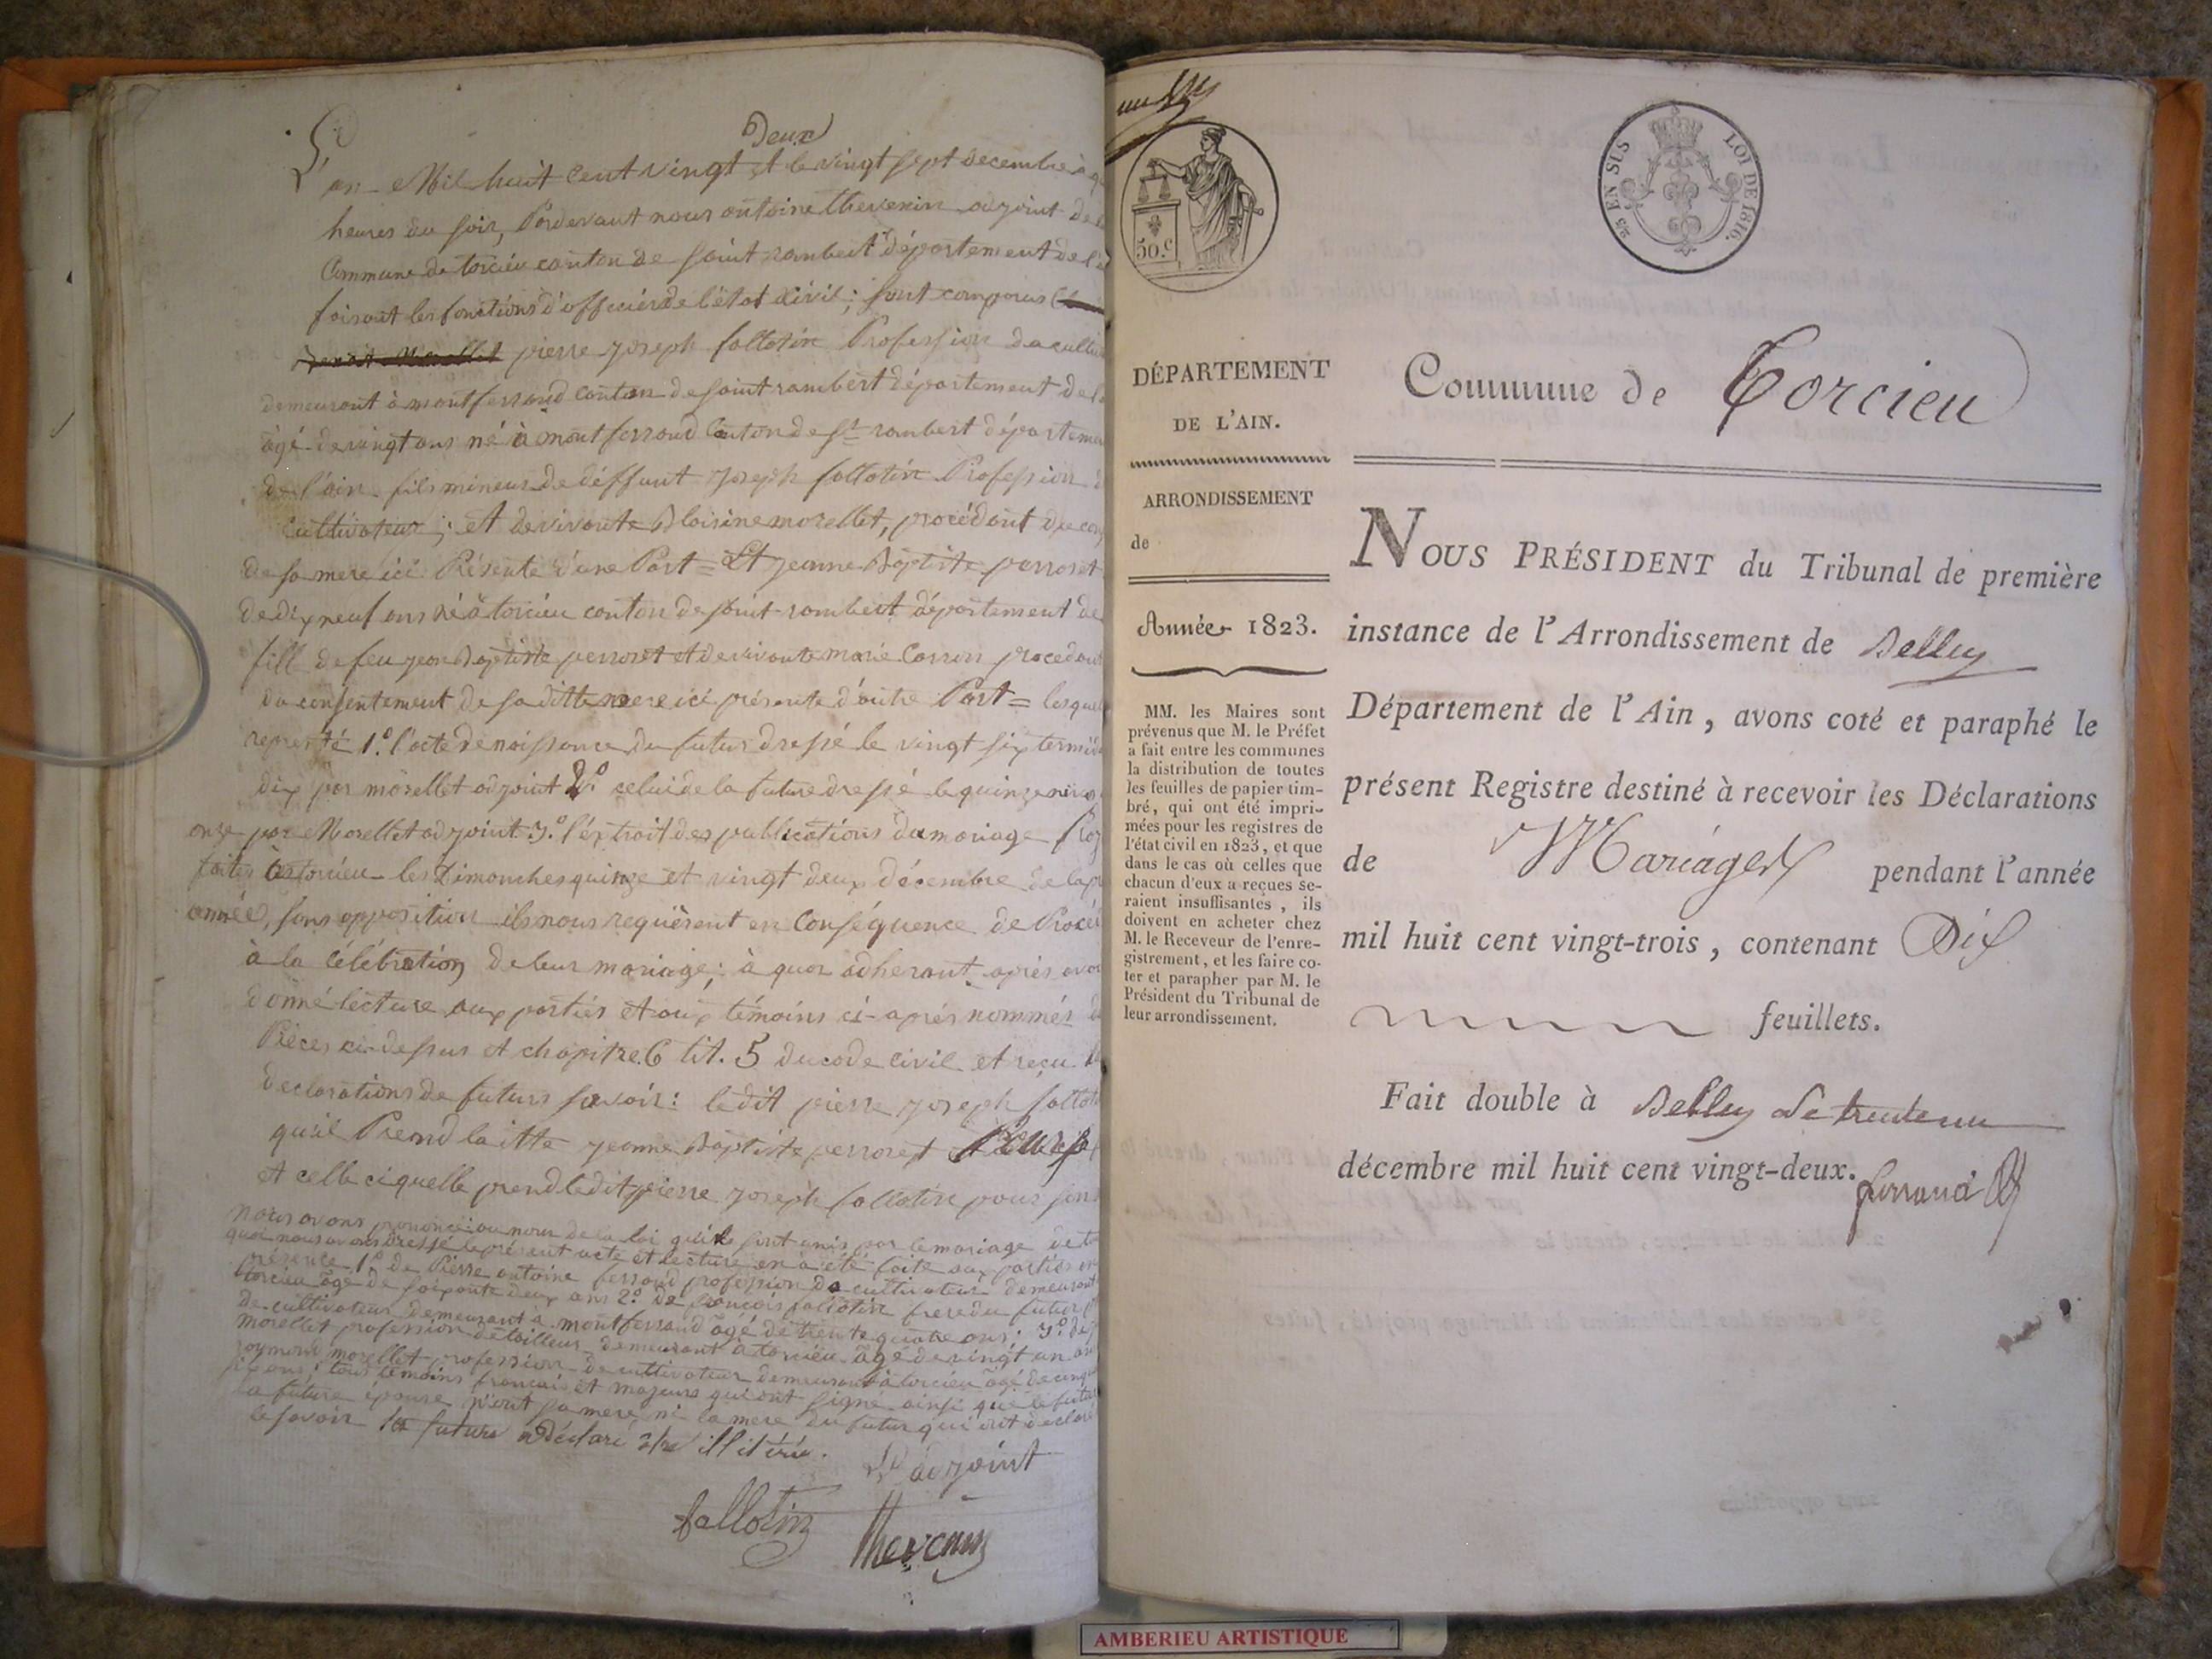 Deux
L'an Mil huit Cent vingt et le vingt sept decembre à
heures du soir, Pardevant nous antoine thevenin adjoint de
Commune de torcieu canton de saint rambert département de l'
faisant les fonctions d'officier de l'état Civil; sont comparus
pierre joseph fallotin Profession de
demeurant à montferrand canton de saint rambert département de
âgé de vingt ans né à montferrand Canton de st rambert
de l'ain fils mineur de déffunt joseph fallotin Profession
Cultivateur; et de vivante Blaisine morellet, procédant du
de sa mere ici Présente d'une Part = Et jeanne Baptiste perroset
de dix neuf ans né à torcieu canton de saint rambert département de
fille de feu jean Baptiste perroset et de vivante marie Carron
du consentement de sa ditte mere ici présente d'autre Part =
1.º l'acte de naissance du futur dressé le vingt six
dix par morellet adjoint 2.º celui de la future dressé le quinze
onze par Morellet adjoint 3.º l'extrait des publications du mariage
faites à torcieu les Dimanches quinze et vingt deux décembre de la
année, sans opposition ils nous requièrent en Conséquence de
à la Célébration de leur mariage; à quoi adherant après
donné lecture aux partiés et aux témoins ci-après nommés
Pièces ci-dessus et chapitre 6 tit. 5 du code civil et reçu
declarations de futurs savoir: ledit pierre joseph
qu'il Prend laditte jeanne Baptiste perroset
et celle ci quelle prend ledit pierre joseph fallotin pour
nous avons prononcé au nom de la loi qu'ils sont unis par le mariage de
quoi nous avons dressé le présent acte et lecture en à été faite aux parties
présence 1.º de Pierre antoine ferrand profession de cultivateur demeurant
torcieu âgé de soixante deux ans 2.º de françois fallotin frere du futur
de cultivateur demeurant à montferrand âgé de trente quatre ans; 3.º
morellet profession de tailleur demeurant a torcieu âgé de vingt un
raymond morellet profession de cultivateur demeurant à torcieu âgé de
ans; tous témoins français et majeurs qui ont signé ainsi que le futur
la future épouse n'ont sa mere ni la mere du futur qui ont
le savoir la future a Déclaré être illitérée.
L'adjoint
fallotin
thevenin
50.C
25 EN SUS
LOI DE 1816.
DÉPARTEMENT
DE L'AIN.
ARRONDISSEMENT
de
Année 1823.
MM. les Maires sont
prévenus que M. le Préfet
a fait entre les communes
la distribution de toutes
les feuilles de papier tim-
bré, qui ont été impri-
mées pour les registres de
l'état civil en 1823, et que
dans le cas où celles que
chacun d'eux a reçues se-
raient insuffisantes, ils
doivent en acheter chez
M. le Receveur de l'enre-
gistrement, et les faire co-
ter et parapher par M. le
Président du Tribunal de
leur arrondissement.
Commune de Torcieu
NOUS PRÉSIDENT du Tribunal de première
instance de l'Arrondissement de Belley
Département de l'Ain, avons coté et paraphé le
présent Registre destiné à recevoir les Déclarations
de Mariages pendant l'année
mil huit cent vingt-trois, contenant Dix
feuillets.
Fait double à Belley le trente un
décembre mil huit cent vingt-deux.
AMBERIEU ARTISTIQUE